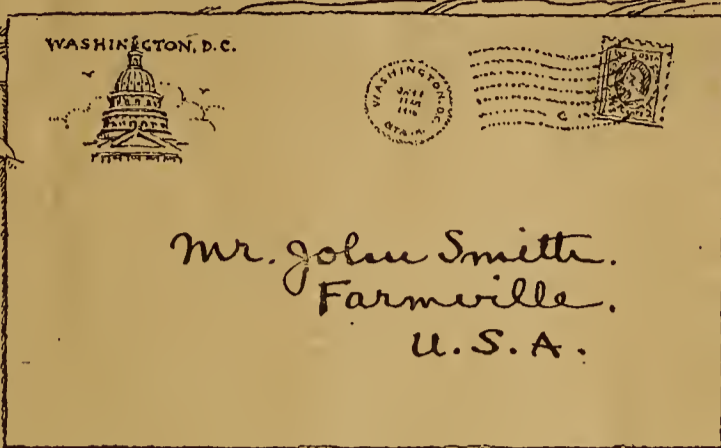 WASHINGTON, D.C.
WASHINGTON, D.C.
Mr. John Smith.
Farmville.
U.S.A.